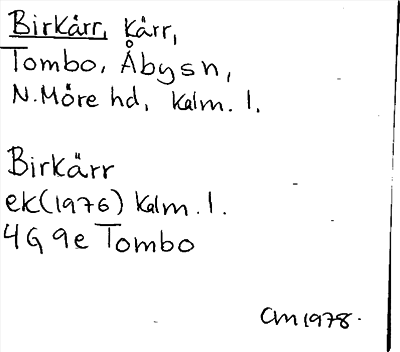 Birkärr, kärr,
Tombo, Åbysn,
N. Möre hd, Kalm. l.
Birkärr
ek (1976) Kalm. l.
4G 9e Tombo
CM 1978.